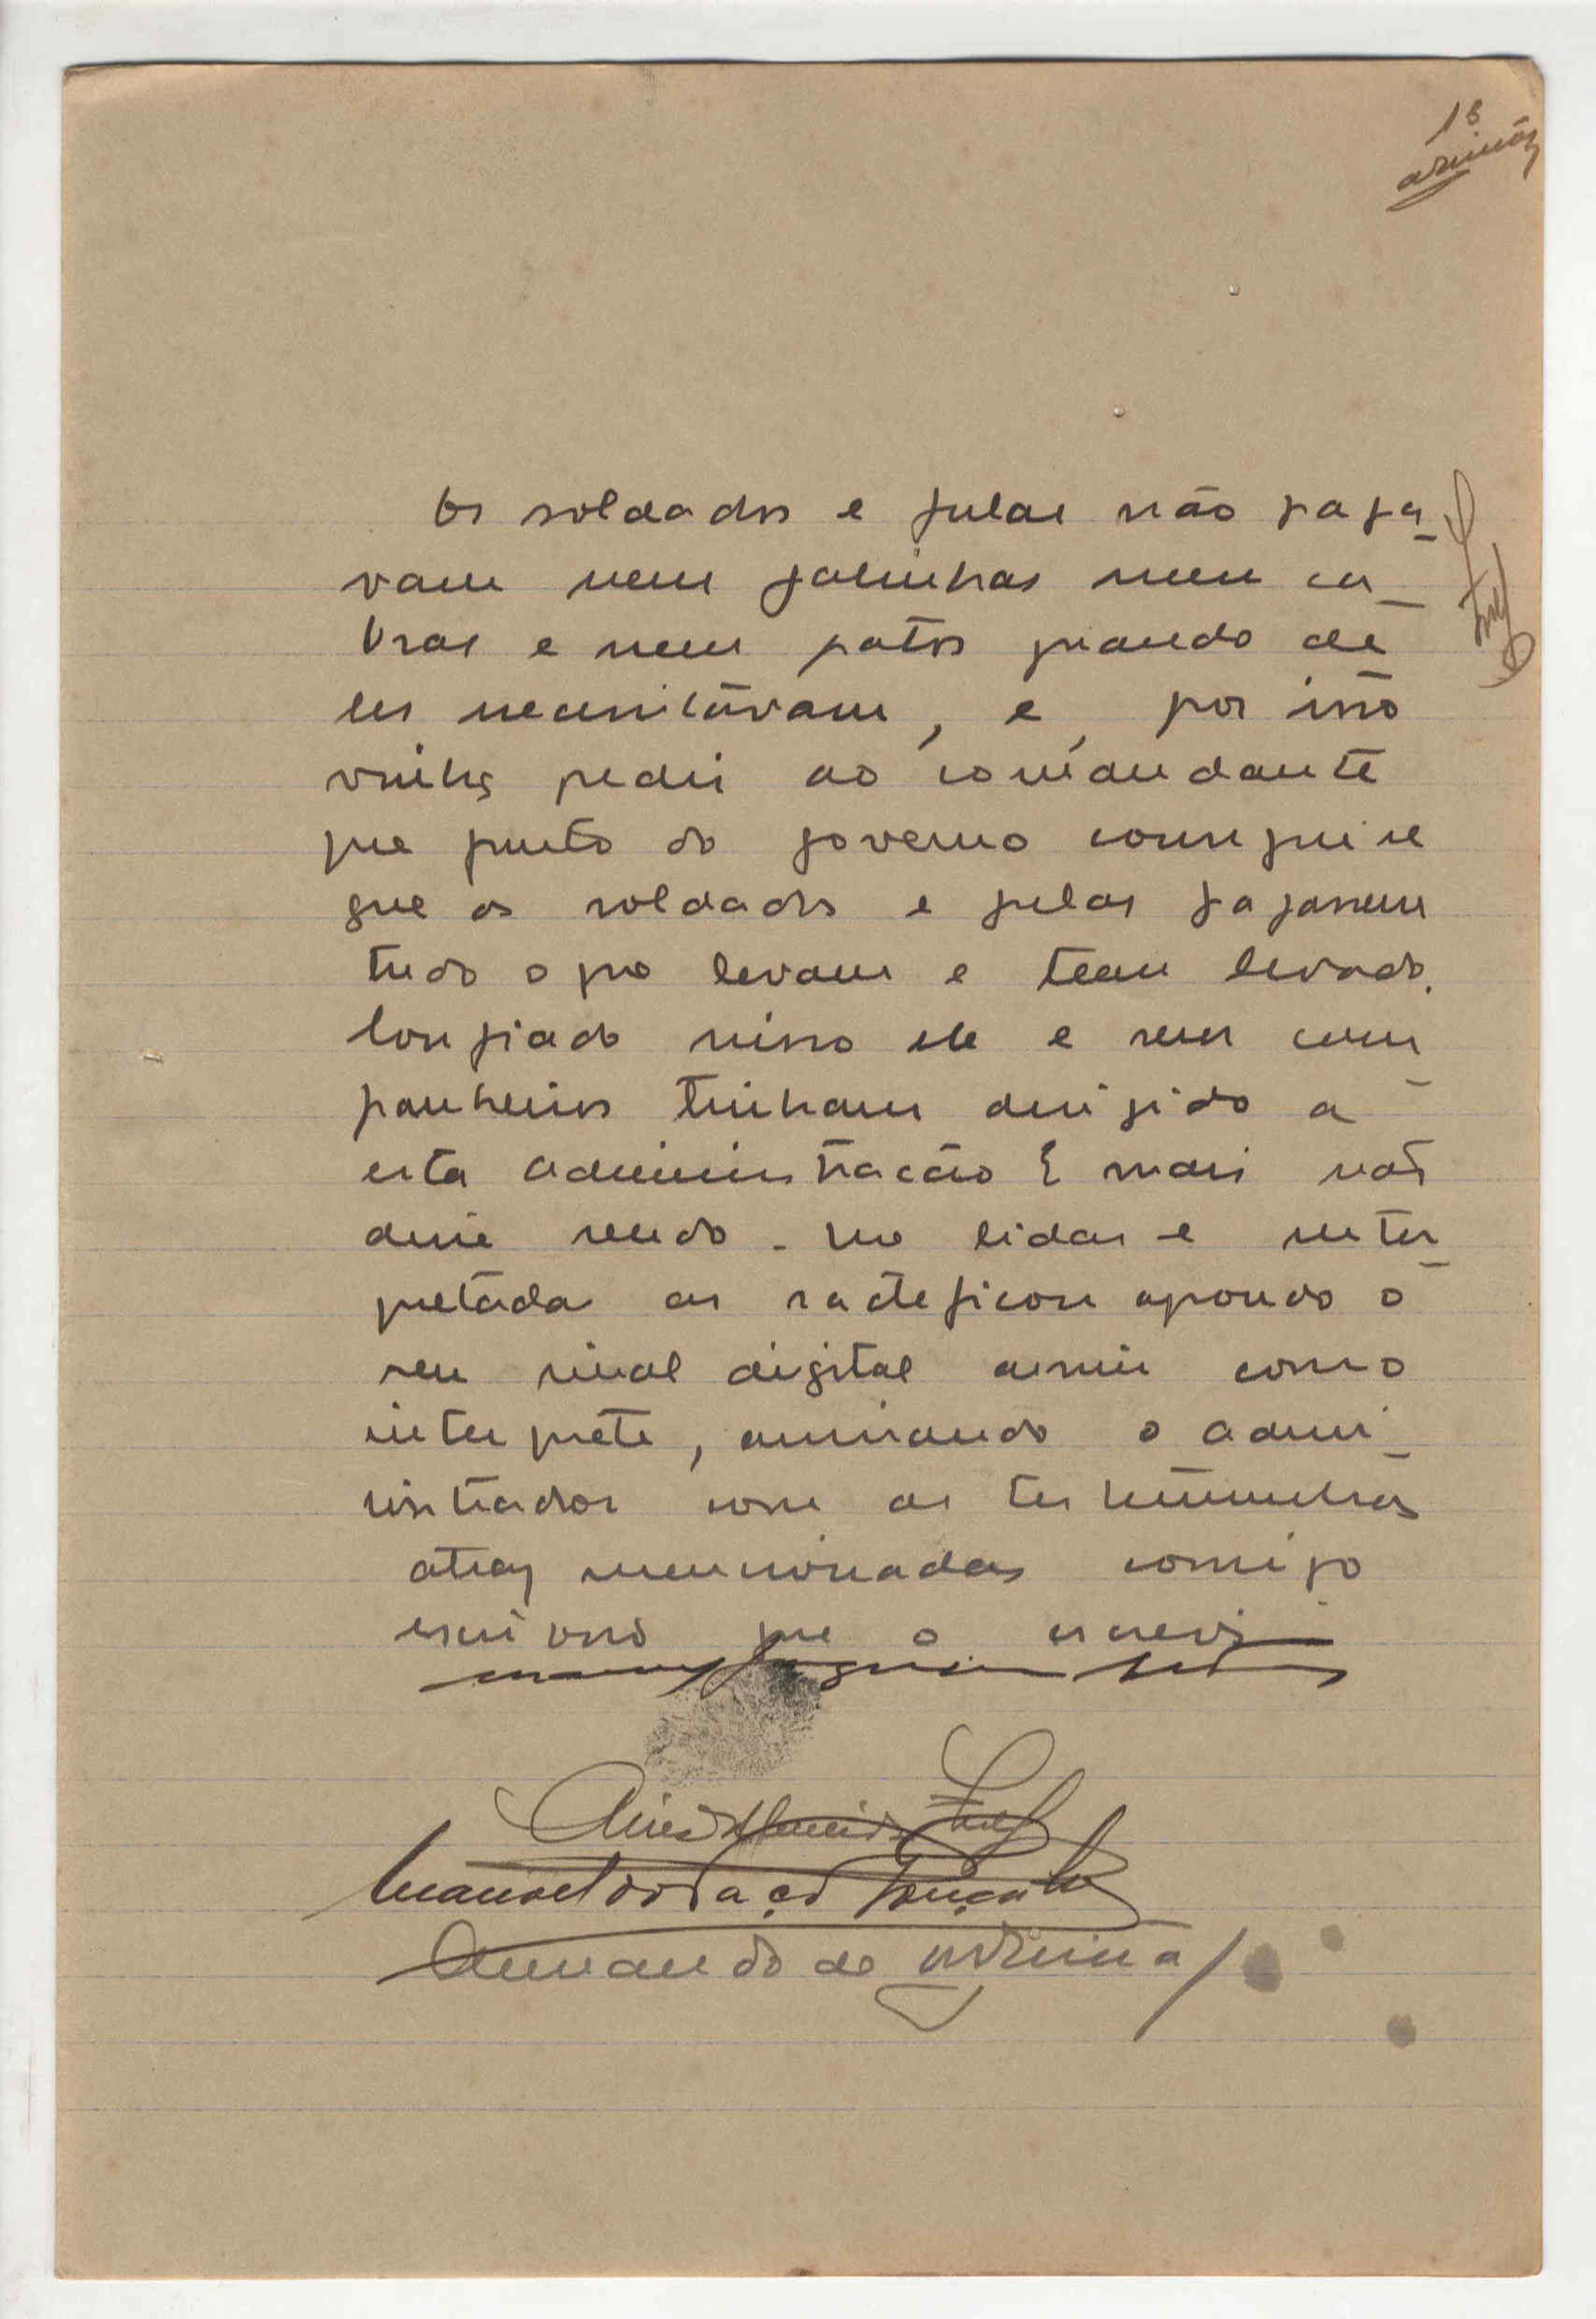 18
Os soldados e fulas não paga-
vam nem galinhas nem ca-
bras e nem patos quando de
les necessitávam, e, por isso
vinha pedir ao comandante
que junto do governo conseguise
que os soldados e fulas pagassem
tudo o que levam e teem levado.
Confiado nisso ele e seus com
panheiros tinham dirigido a
esta administracão E mais não
disse sendo-lhe lidas e inter-
pretada as ratificou apondo o
seu sinal digital assim como
interprete, assinando o admi-
nistrador com as testemunhas
atraz mencionadas comigo
escrivão que o escrevi
Armando de